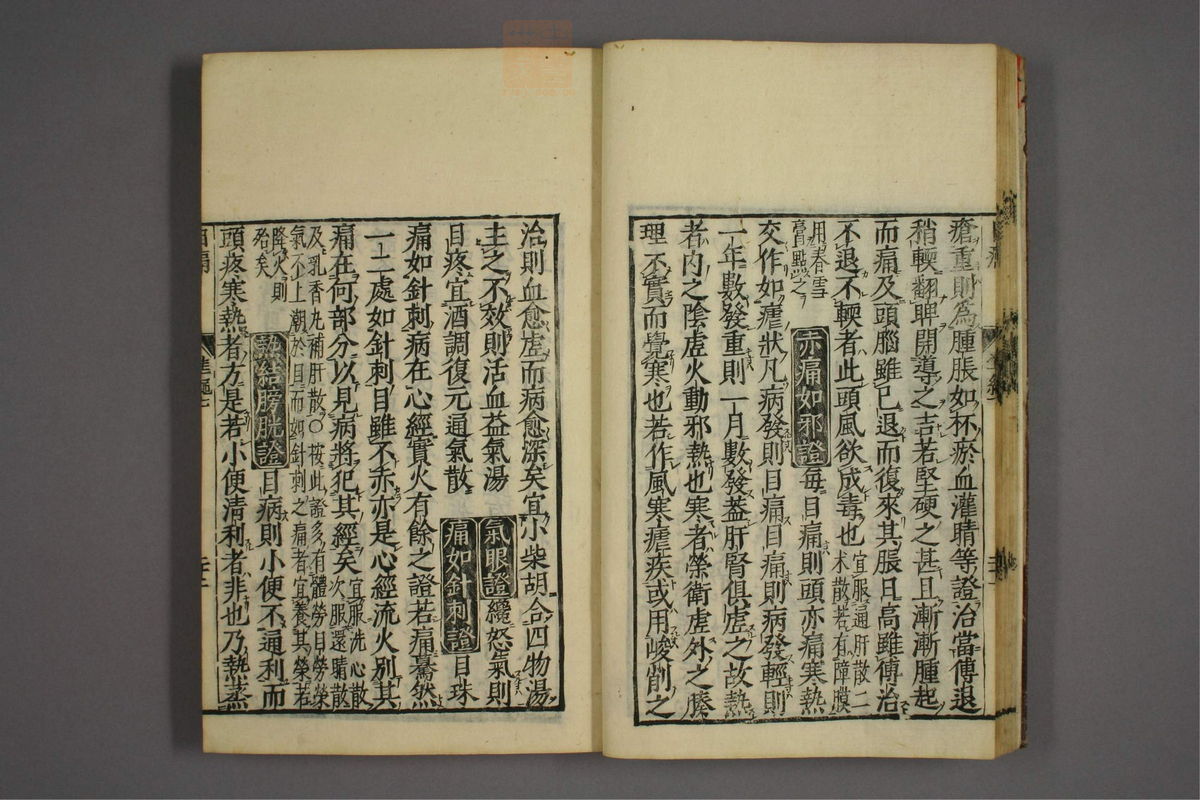 瘡重則為腫脹如杯瘀血灌睛等證治當傅退
稍輭翻睥開導之吉若堅硬之甚且漸漸腫起
而痛及頭腦雖已退而復來其脹日高雖傅治
不退不輭者此頭風欲成毒也宜服通肝散二
术散若有障膜
用春雪
膏點之
赤痛如邪證每目痛則頭亦痛寒熱
交作如瘧狀凡病發則目痛目痛則病發輕則
一年數發重則一月數發蓋肝腎俱虛之故熱
者內之陰虛火動邪熱也寒者榮衛虛外之腠
理不實而覺寒也若作風寒瘧疾或用峻削之
治則血愈虛而病愈深矣宜小柴胡合四物湯
主之不效則活血益氣湯
氣眼證纔怒氣則
目疼宜酒調復元通氣散
痛如針刺證目珠
痛如針刺病在心經實火有餘之證若痛驀然
一二處如針刺目雖不赤亦是心經流火別其
痛在何部分以見病將犯其經矣宜服洗心散
次服還睛散
及乳香丸補肝散○按此證多有體勞目勞榮
氣不上潮於目而如針刺之痛者宜養其榮若
降火則
殆矣
熱結膀胱證目病則小便不通利而
頭疼寒熱者方是若小便清利者非也乃熱蒸